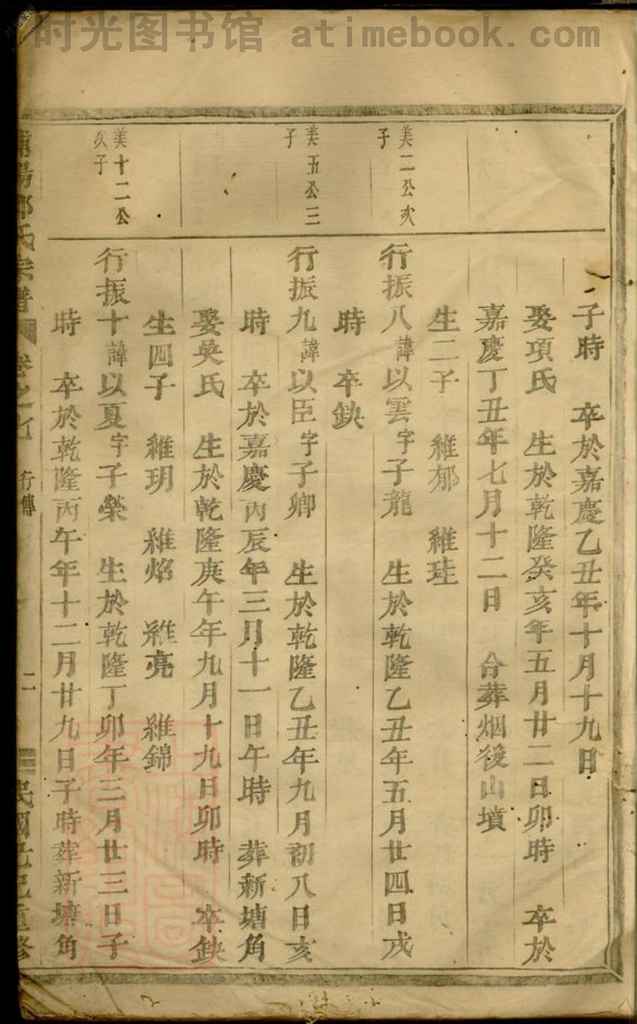 时光图书馆 atimebook.com
子時 卒於嘉慶乙丑年十月十九日
娶項氏 生於乾隆癸亥年五月廿二日卯時 卒於
嘉慶丁丑年七月十二日 合葬烟後山墳
生二子 維郁 維珪
美二公次
子
行振八諱以雲字子龍 生於乾隆乙丑年五月廿四日戌
時 卒缺
美五公三
子
行振九諱以臣字子卿 生於乾隆乙丑年九月初八日亥
時 卒於嘉慶丙辰年三月十一日午時 葬新塘角
娶吳氏 生於乾隆庚午年九月十九日卯時 卒缺
生四子 維玥 維焰 維亮 維錦
美十二公
久子
行振十諱以夏字子榮 生於乾隆丁卯年三月廿三日子
時 卒於乾隆丙午年十二月廿九日子時葬新塘角
氏宗譜 卷之 行傳 二 民國 重修